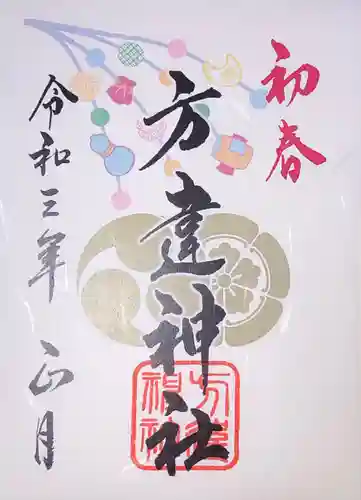 初春
方違神社
令和三年 正月
方違神社